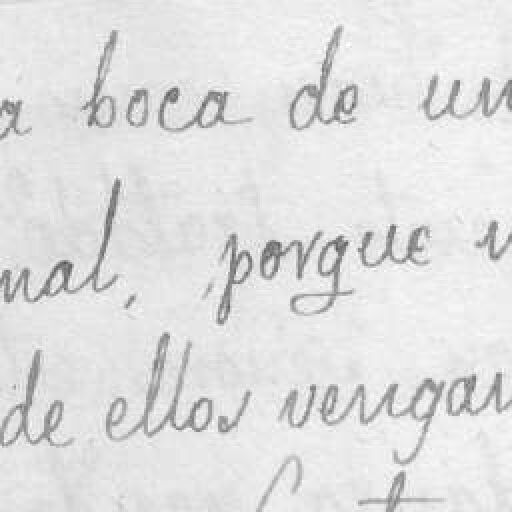 a boca de un
mal, porque
de ellos vengan